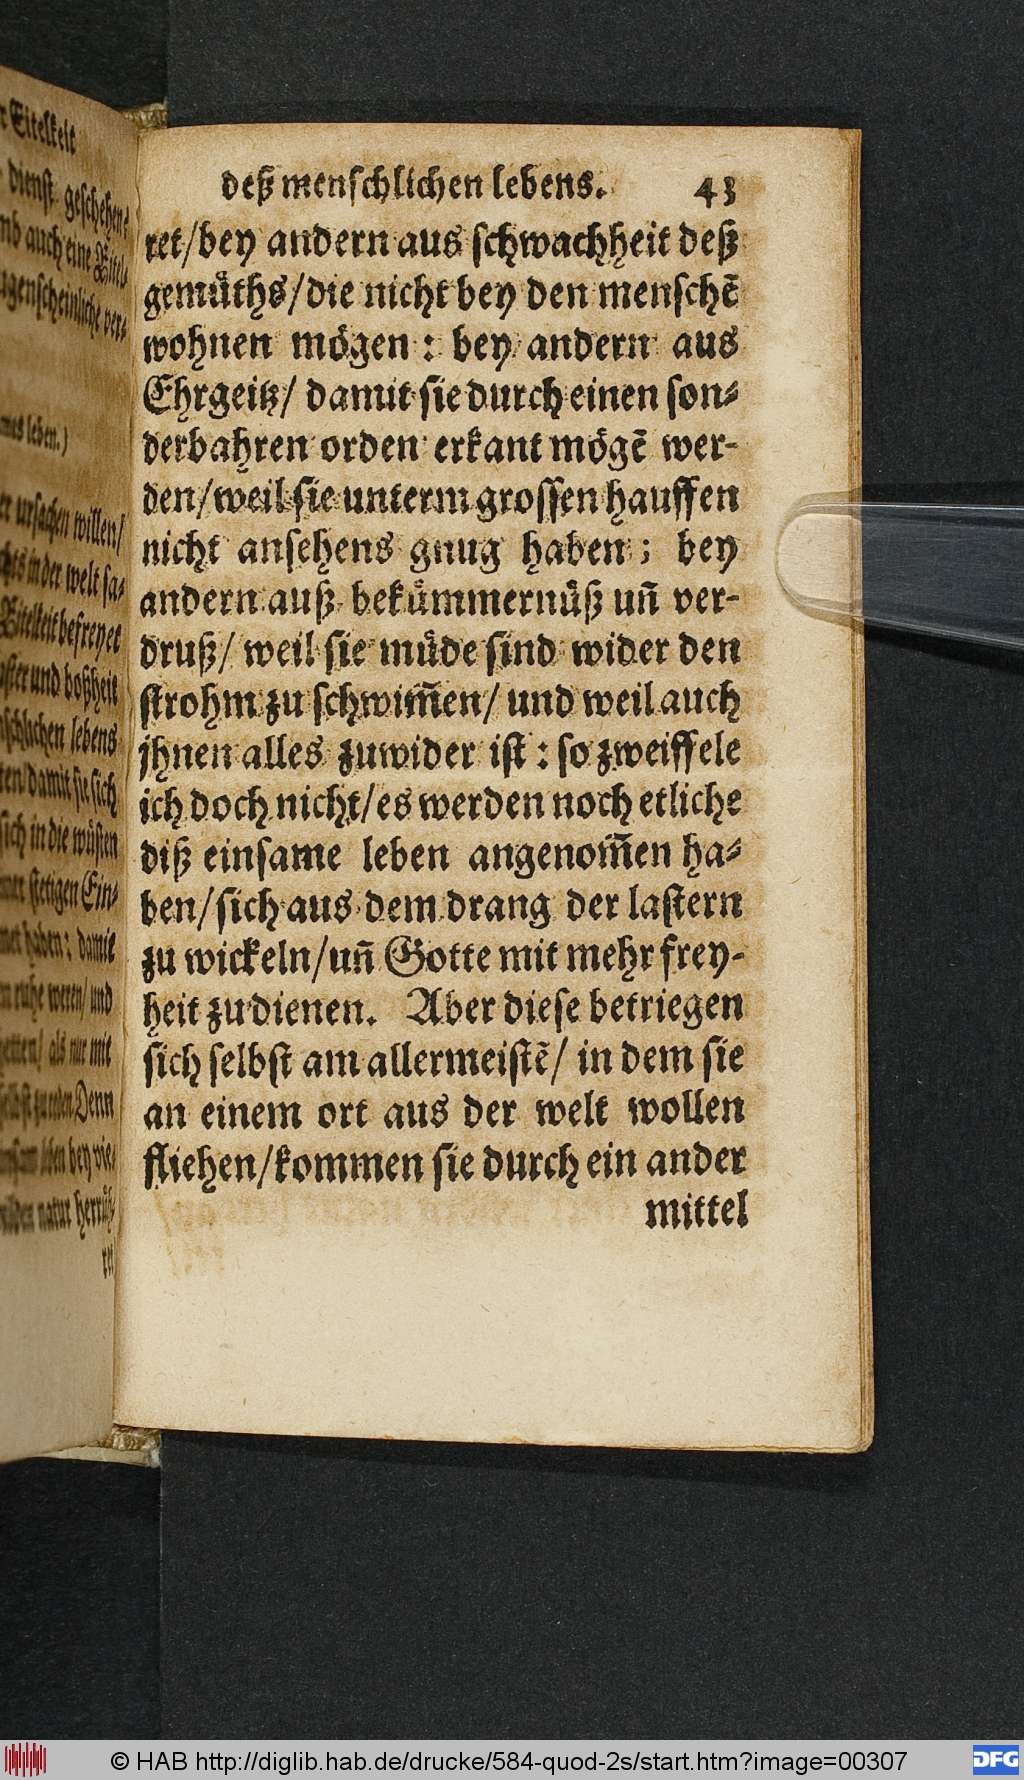 r Eitelkeit
dienst geschehen:
nd auch eine Eitel-
ugenscheinliche ver-
mes leben.)
er ursachen willen/
chts in der welt sa-
Eitelkeit befreyet
und boßheit
schlichen lebens
ten/damit sie sich
sich in die wüsten
ner stetigen Ein-
haben: damit
n ruhe weren/und
als nur mit
Denn
leben bey vie-
natur herrüh-
ret
deß menschlichen lebens. 43
ret/bey andern aus schwachheit deß
gemüths/die nicht bey den menschē
wohnen mögen: bey andern aus
Ehrgeitz/ damit sie durch einen son-
derbahren orden erkant mögē wer-
den/weil sie unterm grossen hauffen
nicht ansehens gnug haben; bey
andern auß bekümmernüß uñ ver-
druß/ weil sie müde sind wider den
strohm zu schwim̃en/ und weil auch
jhnen alles zuwider ist: so zweiffele
ich doch nicht/es werden noch etliche
diß einsame leben angenom̃en ha-
ben/sich aus dem drang der lastern
zu wickeln/uñ Gotte mit mehr frey-
heit zu dienen. Aber diese betriegen
sich selbst am allermeistē/ in dem sie
an einem ort aus der welt wollen
fliehen/kommen sie durch ein ander
mittel
© HAB http://diglib.hab.de/drucke/584-quod-2s/start.htm?image=00307
DFG